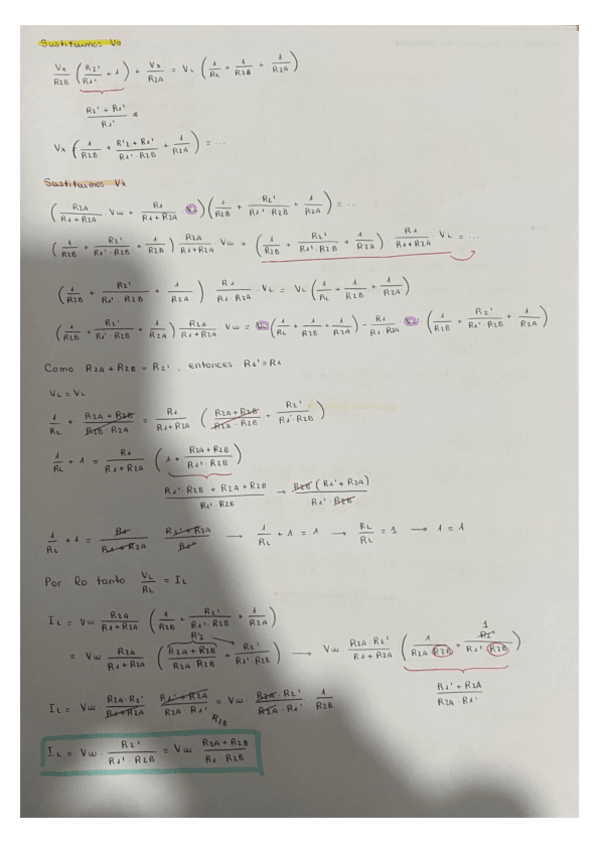 Sustituimos Vo
Vx/R2B (R2'/R1' + 1) + Vx/R2A = VL (1/RL + 1/R2B + 1/R2A)
(R2' + R1')/R1'
Vx (1/R2B + (R'2 + R1')/(R1' · R2B) + 1/R2A) = ...
Sustituimos Vx
(R2A/(R1+R2A) · Vw + R1/(R1+R2A) · VL)(1/R2B + R2'/(R1' · R2B) + 1/R2A) = ...
(1/R2B + R2'/(R1' · R2B) + 1/R2A) R2A/(R1+R2A) Vw + (1/R2B + R2'/(R1' · R2B) + 1/R2A) R1/(R1+R2A) · VL = ...
(1/R2B + R2'/(R1' · R2B) + 1/R2A) R1/(R1 · R2A) · VL = VL (1/RL + 1/R2B + 1/R2A)
(1/R2B + R2'/(R1' · R2B) + 1/R2A) R2A/(R1+R2A) Vw = VL (1/RL + 1/R2B + 1/R2A) - R1/(R1 · R2A) VL · (1/R2B + R2'/(R1' · R2B) + 1/R2A)
Como R2A + R2B = R2', entonces R1' = R1
VL = VL
1/RL + (R2A + R2B)/(R2B · R2A) = R1/(R1+R2A) ((R2A+R2B)/(R2A · R2B) + R2'/(R1' · R2B))
1/RL + 1 = R1/(R1+R2A) (1 + (R2A+R2B)/(R1' · R2B))
(R1' · R2B + R2A + R2B)/(R1' · R2B) → R2B (R1' + R2A)/(R1' · R2B)
1/RL + 1 = R1/(R1+R2A) (R1'+R2A)/R1' → 1/RL + 1 = 1 → RL/RL = 1 → 1 = 1
Por lo tanto VL/RL = IL
IL = Vw R2A/(R1+R2A) (1/R2B + R2'/(R1' · R2B) + 1/R2A)
R'2
= Vw R2A/(R1+R2A) ((R2A+R2B)/(R2A · R2B) + R2'/(R1' · R2B)) → Vw · (R2A · R2')/(R1+R2A) (1/(R2A · R2B) + 1/(R1' · R2B))
(R1' + R2A)/(R2A · R1')
IL = Vw · (R2A · R2')/(R1+R2A) (R1'+R2A)/(R2A · R1') = Vw · (R2A · R2')/(R2A · R1') · 1/R2B
R2B
IL = Vw · R2'/(R1' · R2B) = Vw · (R2A+R2B)/(R1 · R2B)